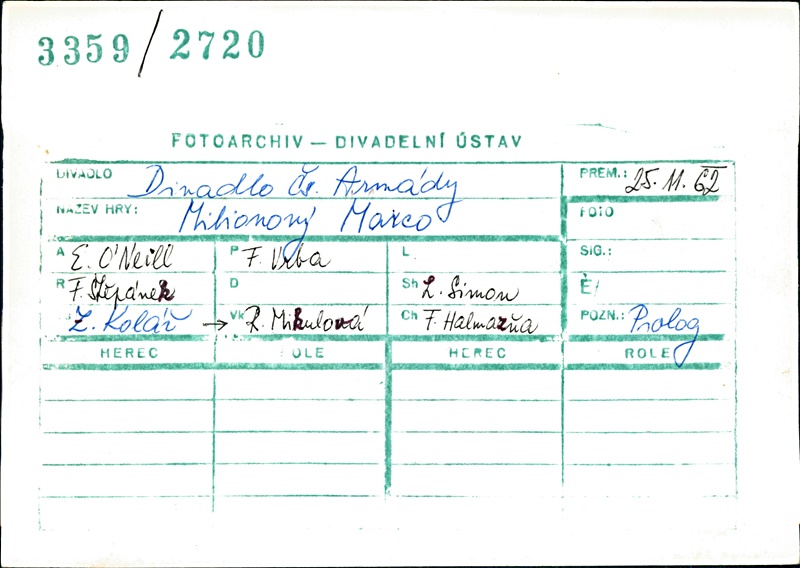 3359/2720
FOTOARCHIV — DIVADELNÍ ÚSTAV
DIVADLO Divadlo čs. Armády PREM.: 25. 11. 62
NÁZEV HRY: Milionový Marco FOTO
A E. O'Neill P F. Vrba L SIG.:
R F. Štěpánek D Sh L. Simon Č/
Z. Kolář → Vk R. Mikulová Ch F. Halmazňa POZN.: Prolog
HEREC OLE HEREC ROLE